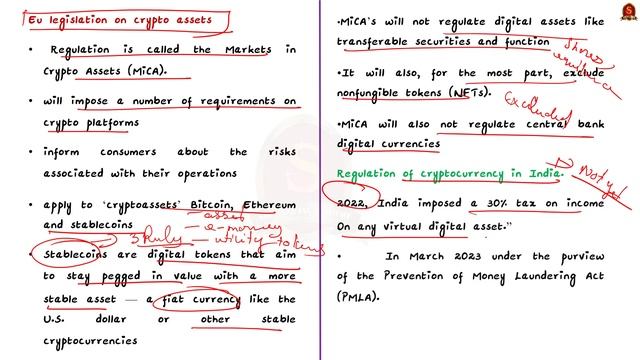 Eu legislation on crypto assets
• Regulation is called the Markets in
Crypto Assets (MiCA).
• will impose a number of requirements on
crypto platforms
• inform consumers about the risks
associated with their operations
• apply to 'cryptoassets' Bitcoin, Ethereum
and stablecoins
asset
e-money
3 Rules — utility tokens
• Stablecoins are digital tokens that aim
to stay pegged in value with a more
stable asset — a fiat currency like the
U.S. dollar or other stable
cryptocurrencies
•MiCA's will not regulate digital assets like
transferable securities and function
Shares,
•It will also, for the most part, exclude
nonfungible tokens (NFTs).
Excluded
•MiCA will also not regulate central bank
digital currencies
Regulation of cryptocurrency in India.
Not yet
2022, India imposed a 30% tax on income
On any virtual digital asset."
• In March 2023 under the purview
of the Prevention of Money Laundering Act
(PMLA).